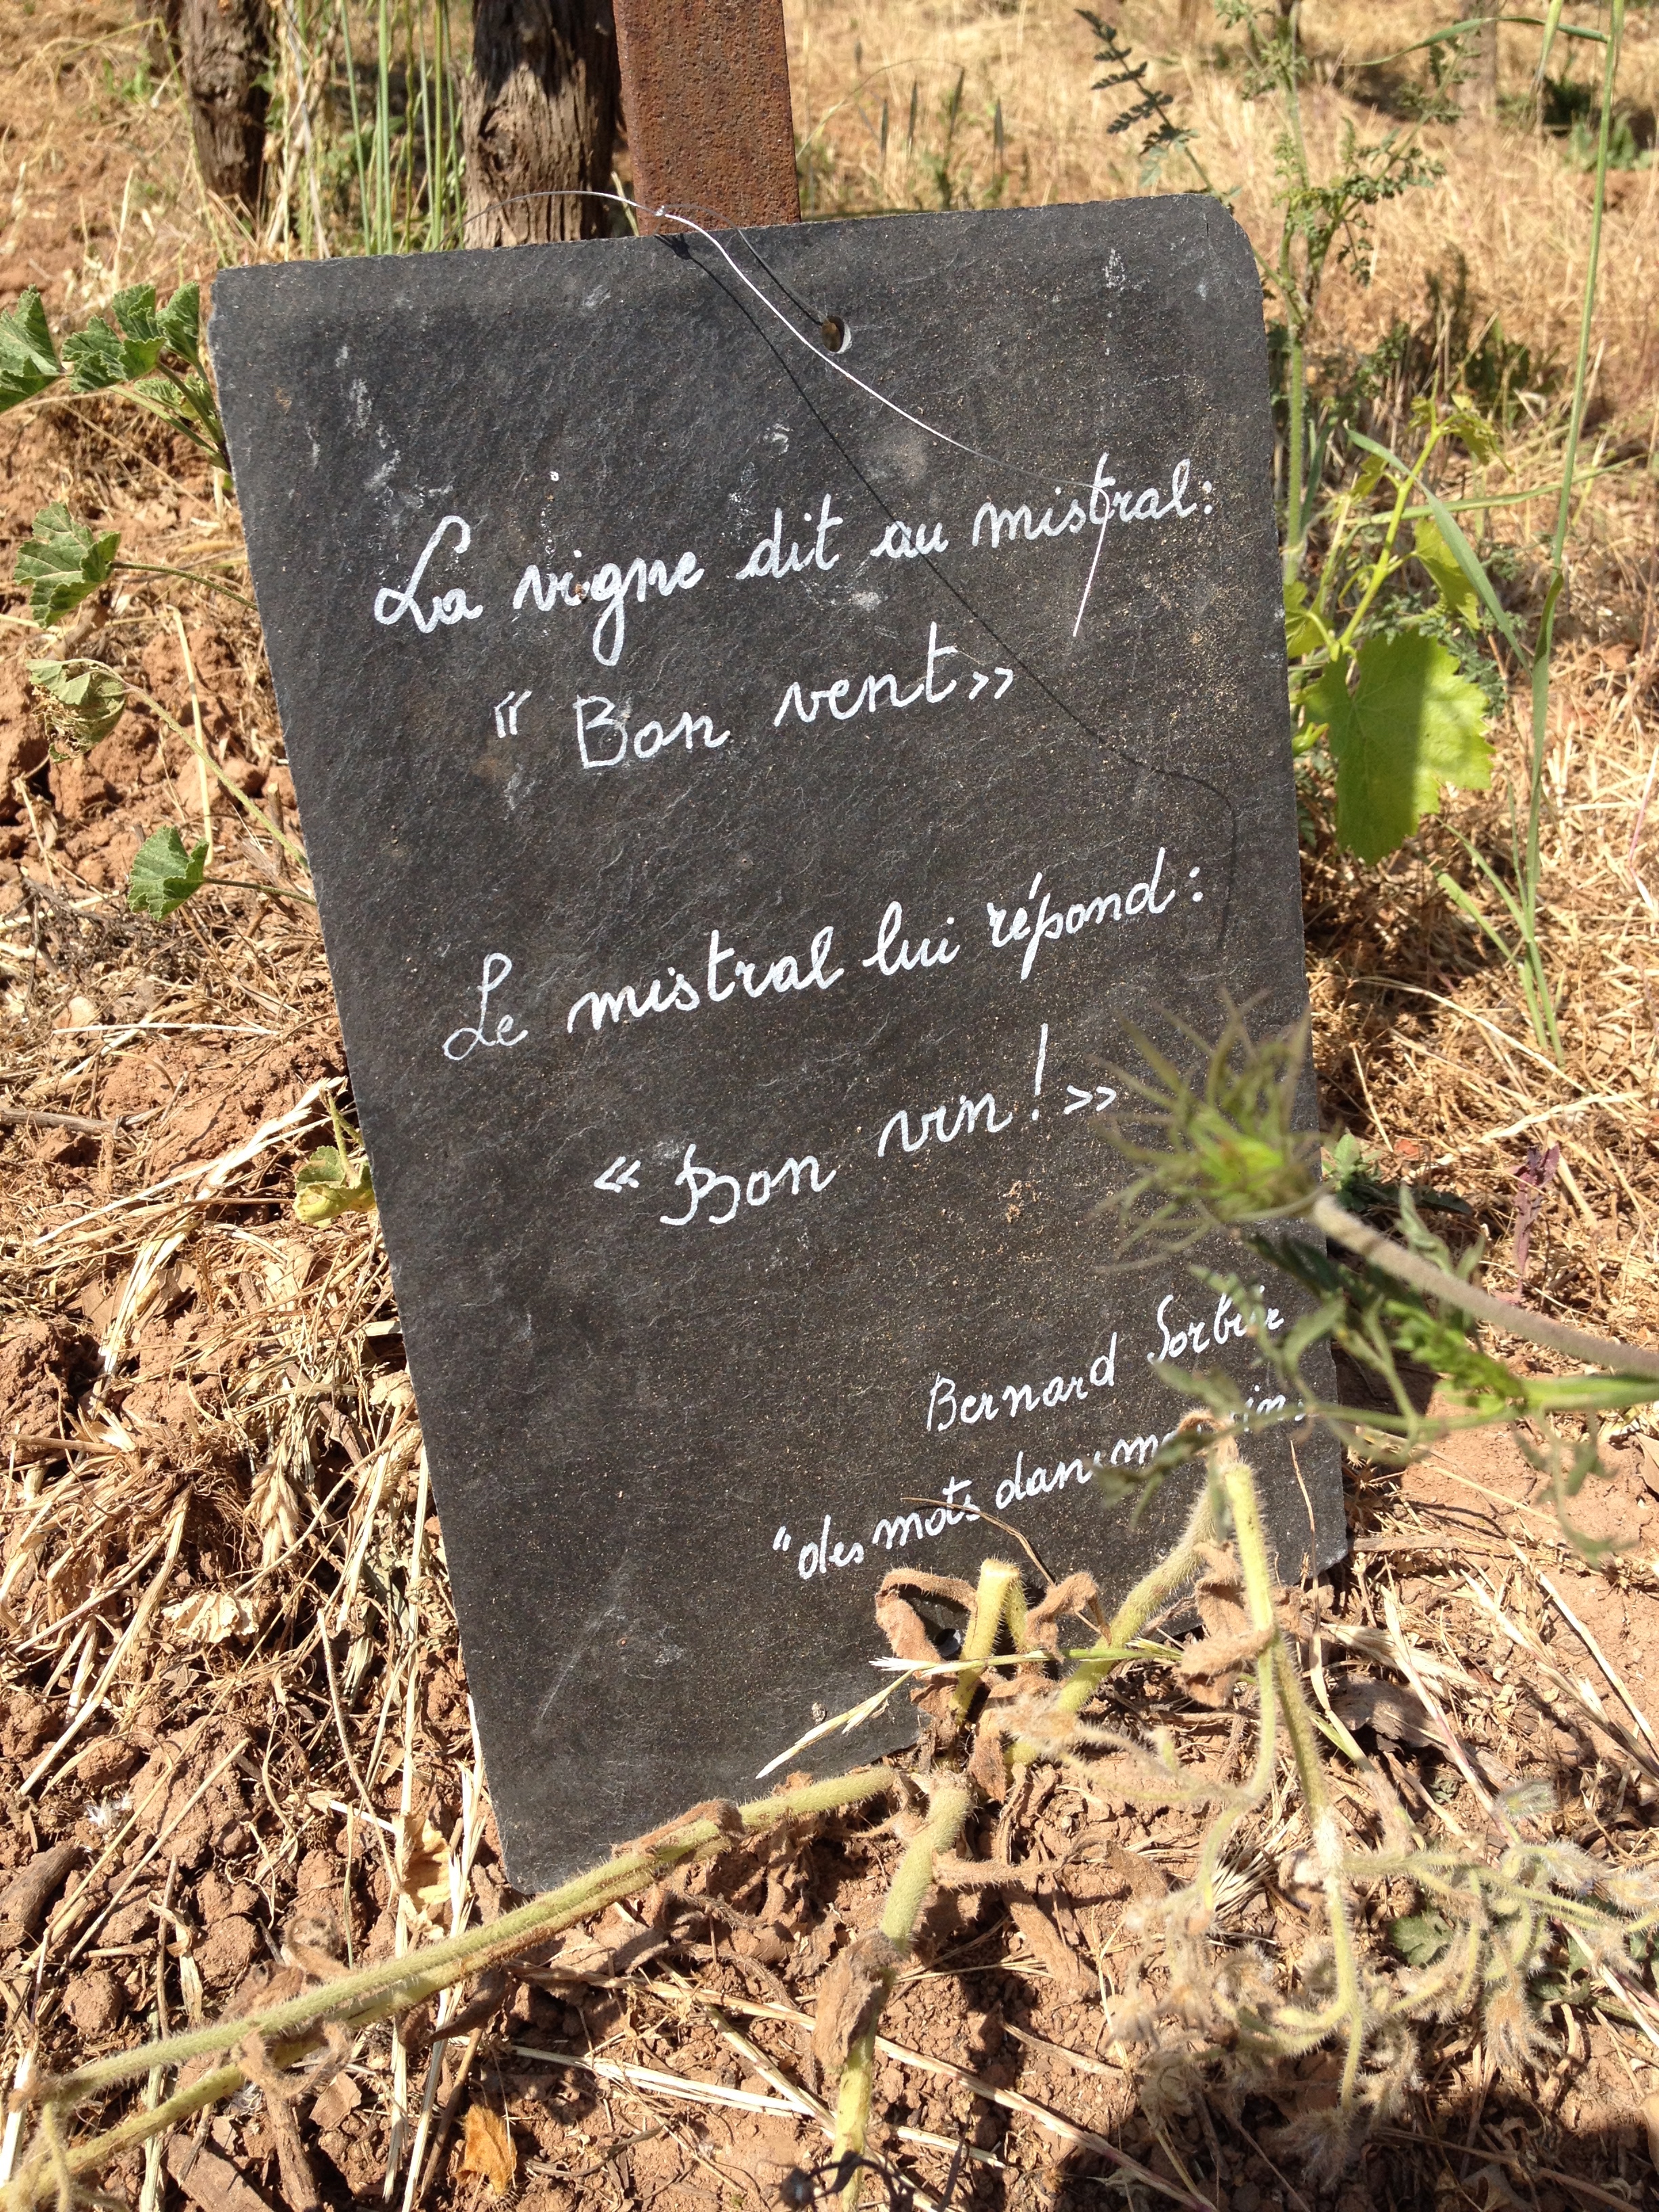 La vigne dit au mistral:
« Bon vent »
Le mistral lui répond :
« Bon vin ! »
Bernard
"des mots dans